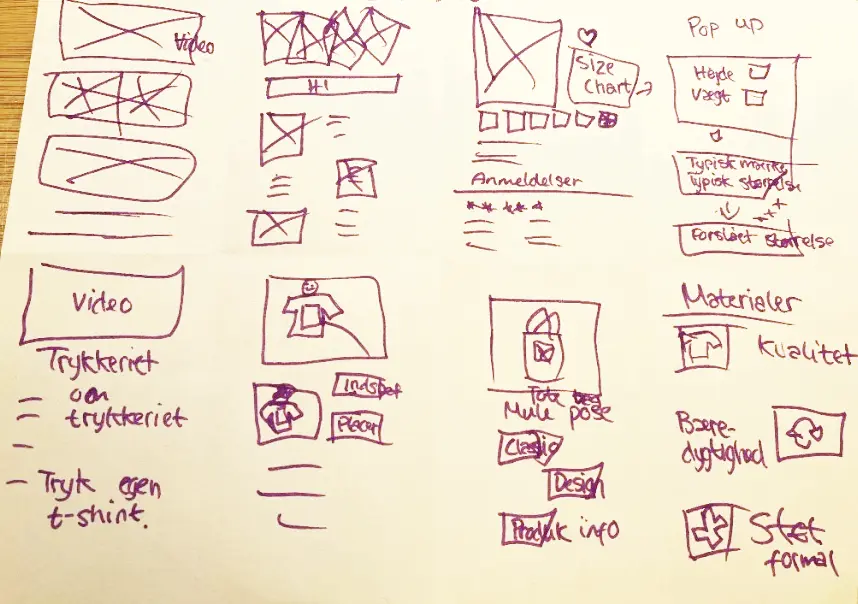 Video
Hi
Size
Chart
Anmeldelser
Pop up
Højde
Vægt
Typisk mærke
Typisk størrelse
Forslået størrelse
Video
Trykkeriet
om
trykkeriet
Tryk egen
t-shirt.
Placer
Tote
Mule pose
Classic
Design
Produk info
Materialer
Kvalitet
Bære-
dygtighed
Støt
formål